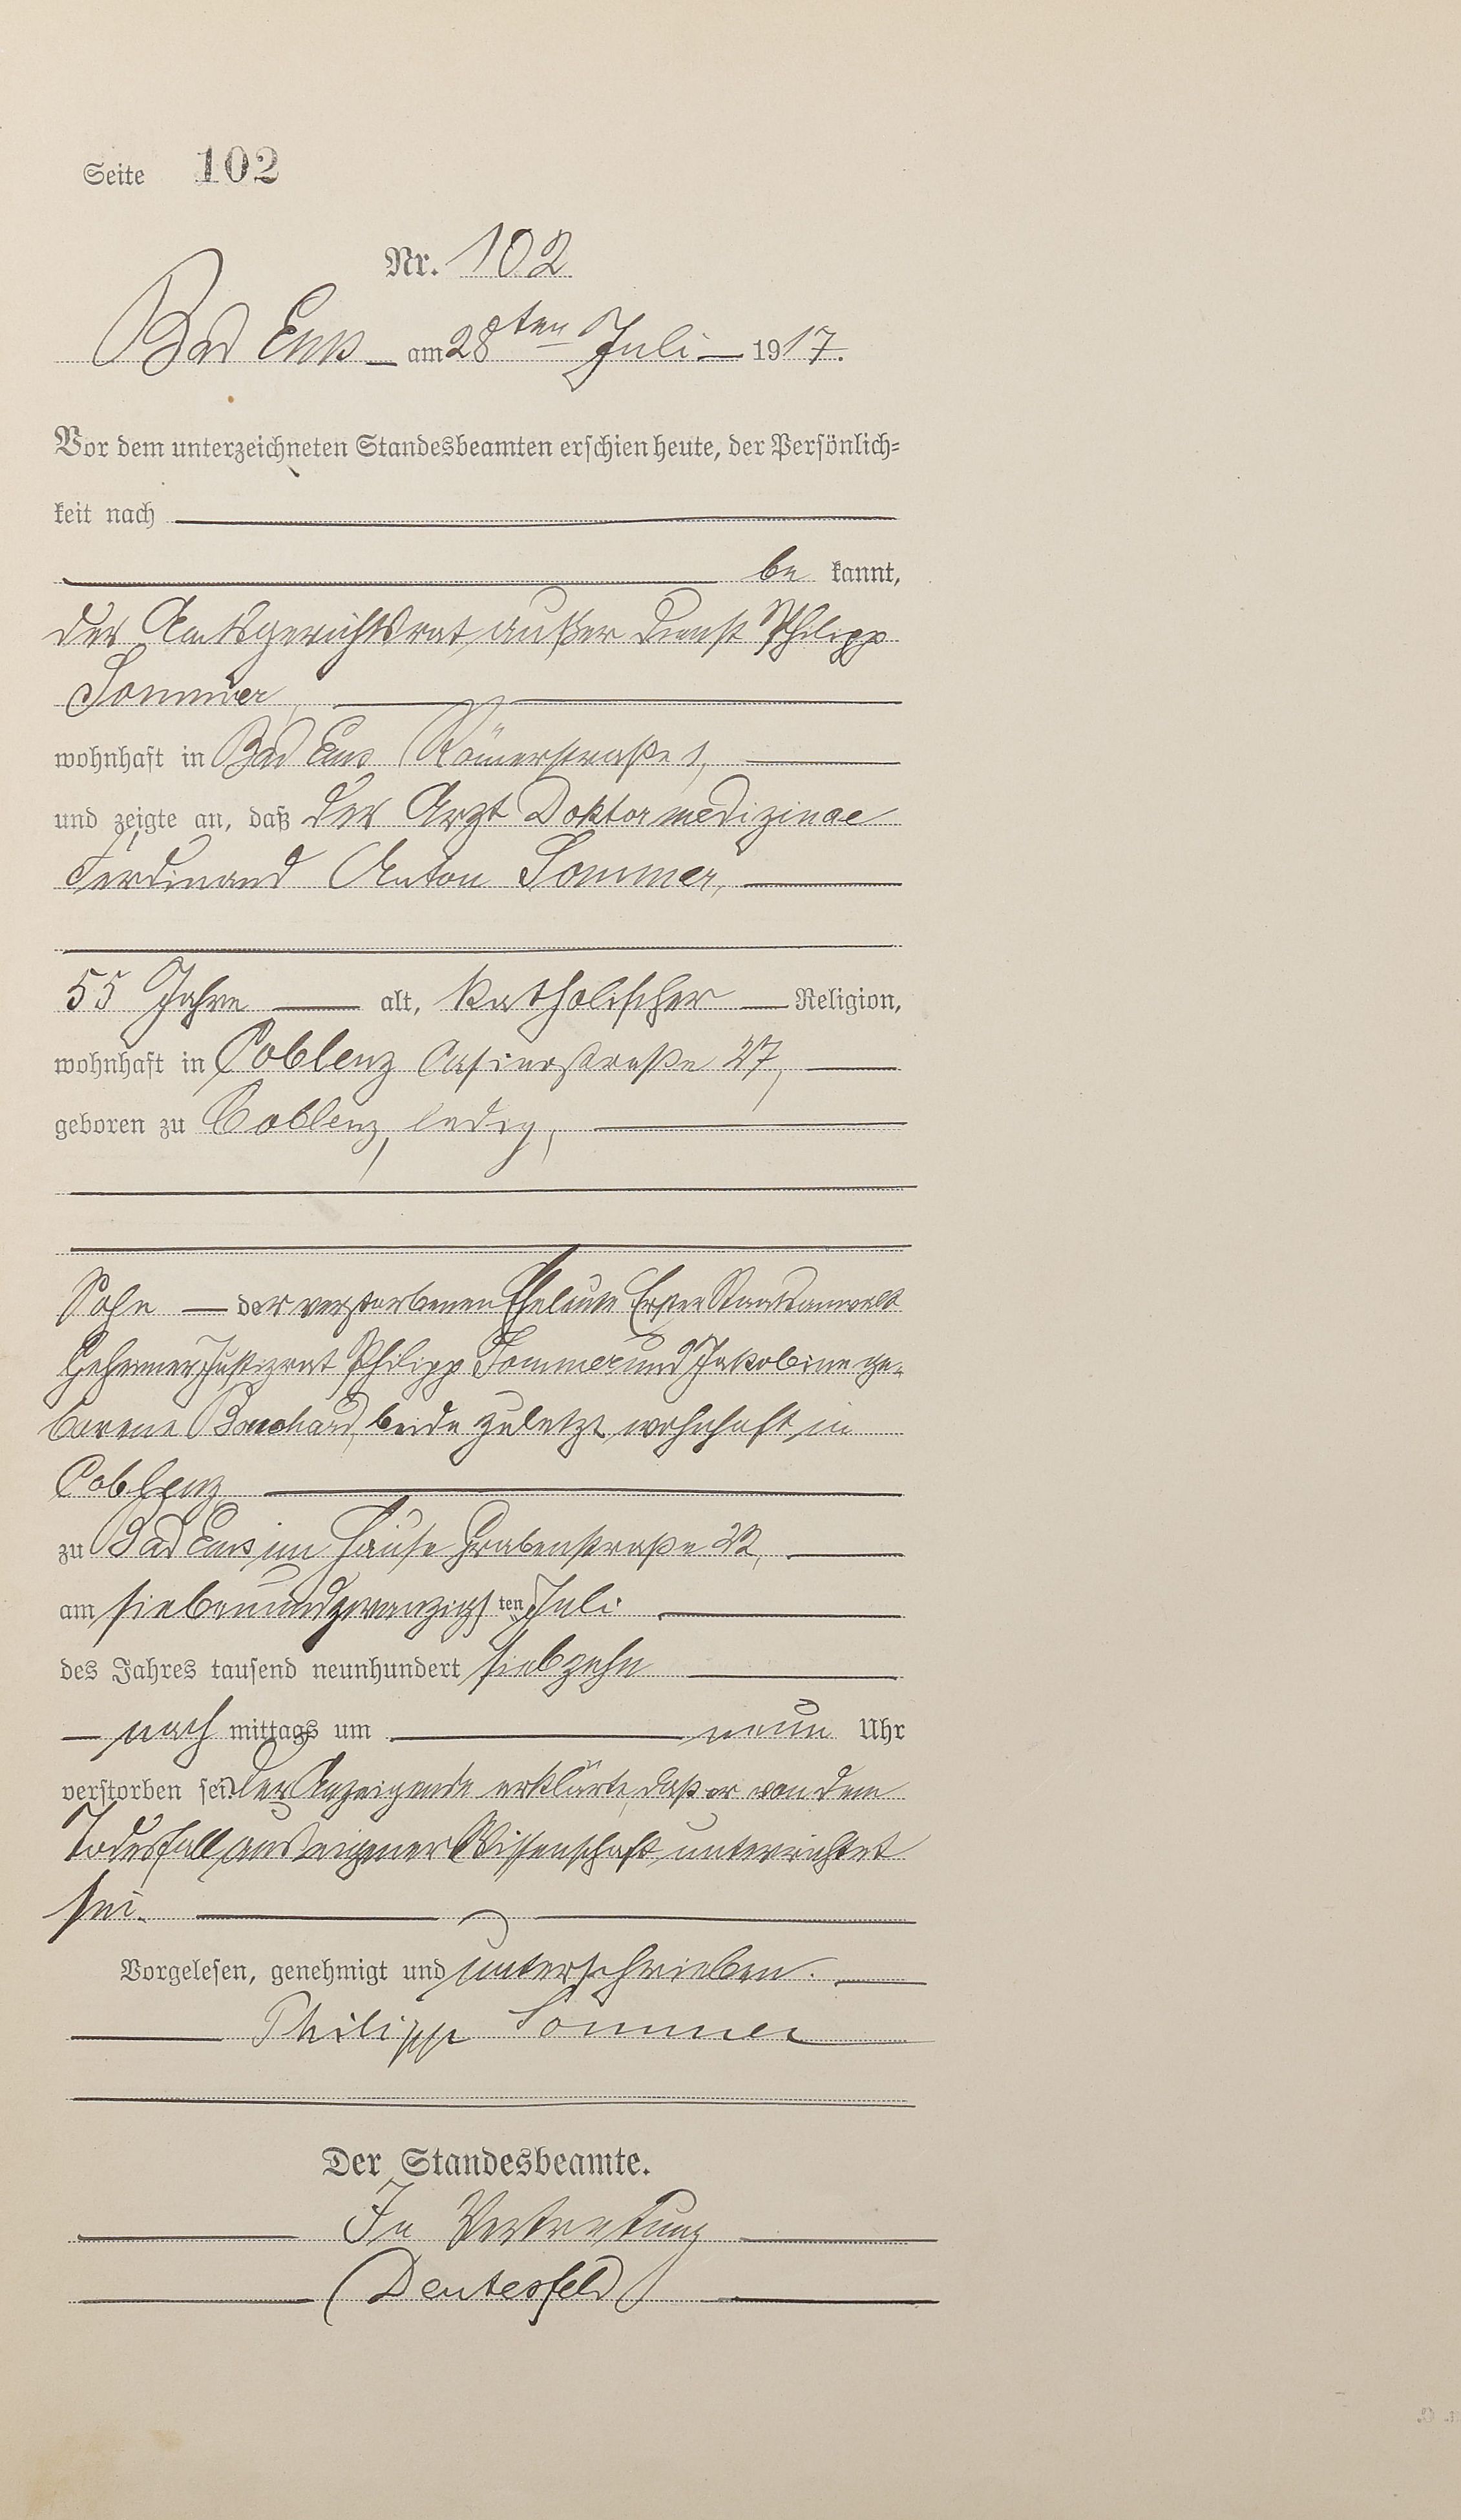 Seite 102
Nr. 102
Bad Ems am 28ten Juli 1917.
Vor dem unterzeichneten Standesbeamten erschien heute, der Persönlich=
keit nach
be kannt,
der Amtsgerichtsrat außer Dienst Philipp
Sommer,
wohnhaft in Bad Ems Römerstraße 1,
und zeigte an, daß der Arzt Doktor medizinae
Ferdinand Anton Sommer,
55 Jahre alt, katholischer Religion,
wohnhaft in Coblenz Casinostraße 27,
geboren zu Coblenz, ledig,
Sohn der verstorbenen Eheleute Erster Staatsanwalt
Geheimer Justizrat Philipp Sommer und Jakobine ge-
borene beide zuletzt wohnhaft in
Coblenz
zu Bad Ems im Hause Grabenstraße 22,
am siebenundzwanzigsten Juli
des Jahres tausend neunhundert siebzehn
nach mittags um neun Uhr
verstorben sei. Der Anzeigende erklärte, daß er von dem
Todesfall aus eigener Wissenschaft unterrichtet
sei.
Vorgelesen, genehmigt und unterschrieben.
Philipp Sommer
Der Standesbeamte.
In Vertretung
Deutesfeld